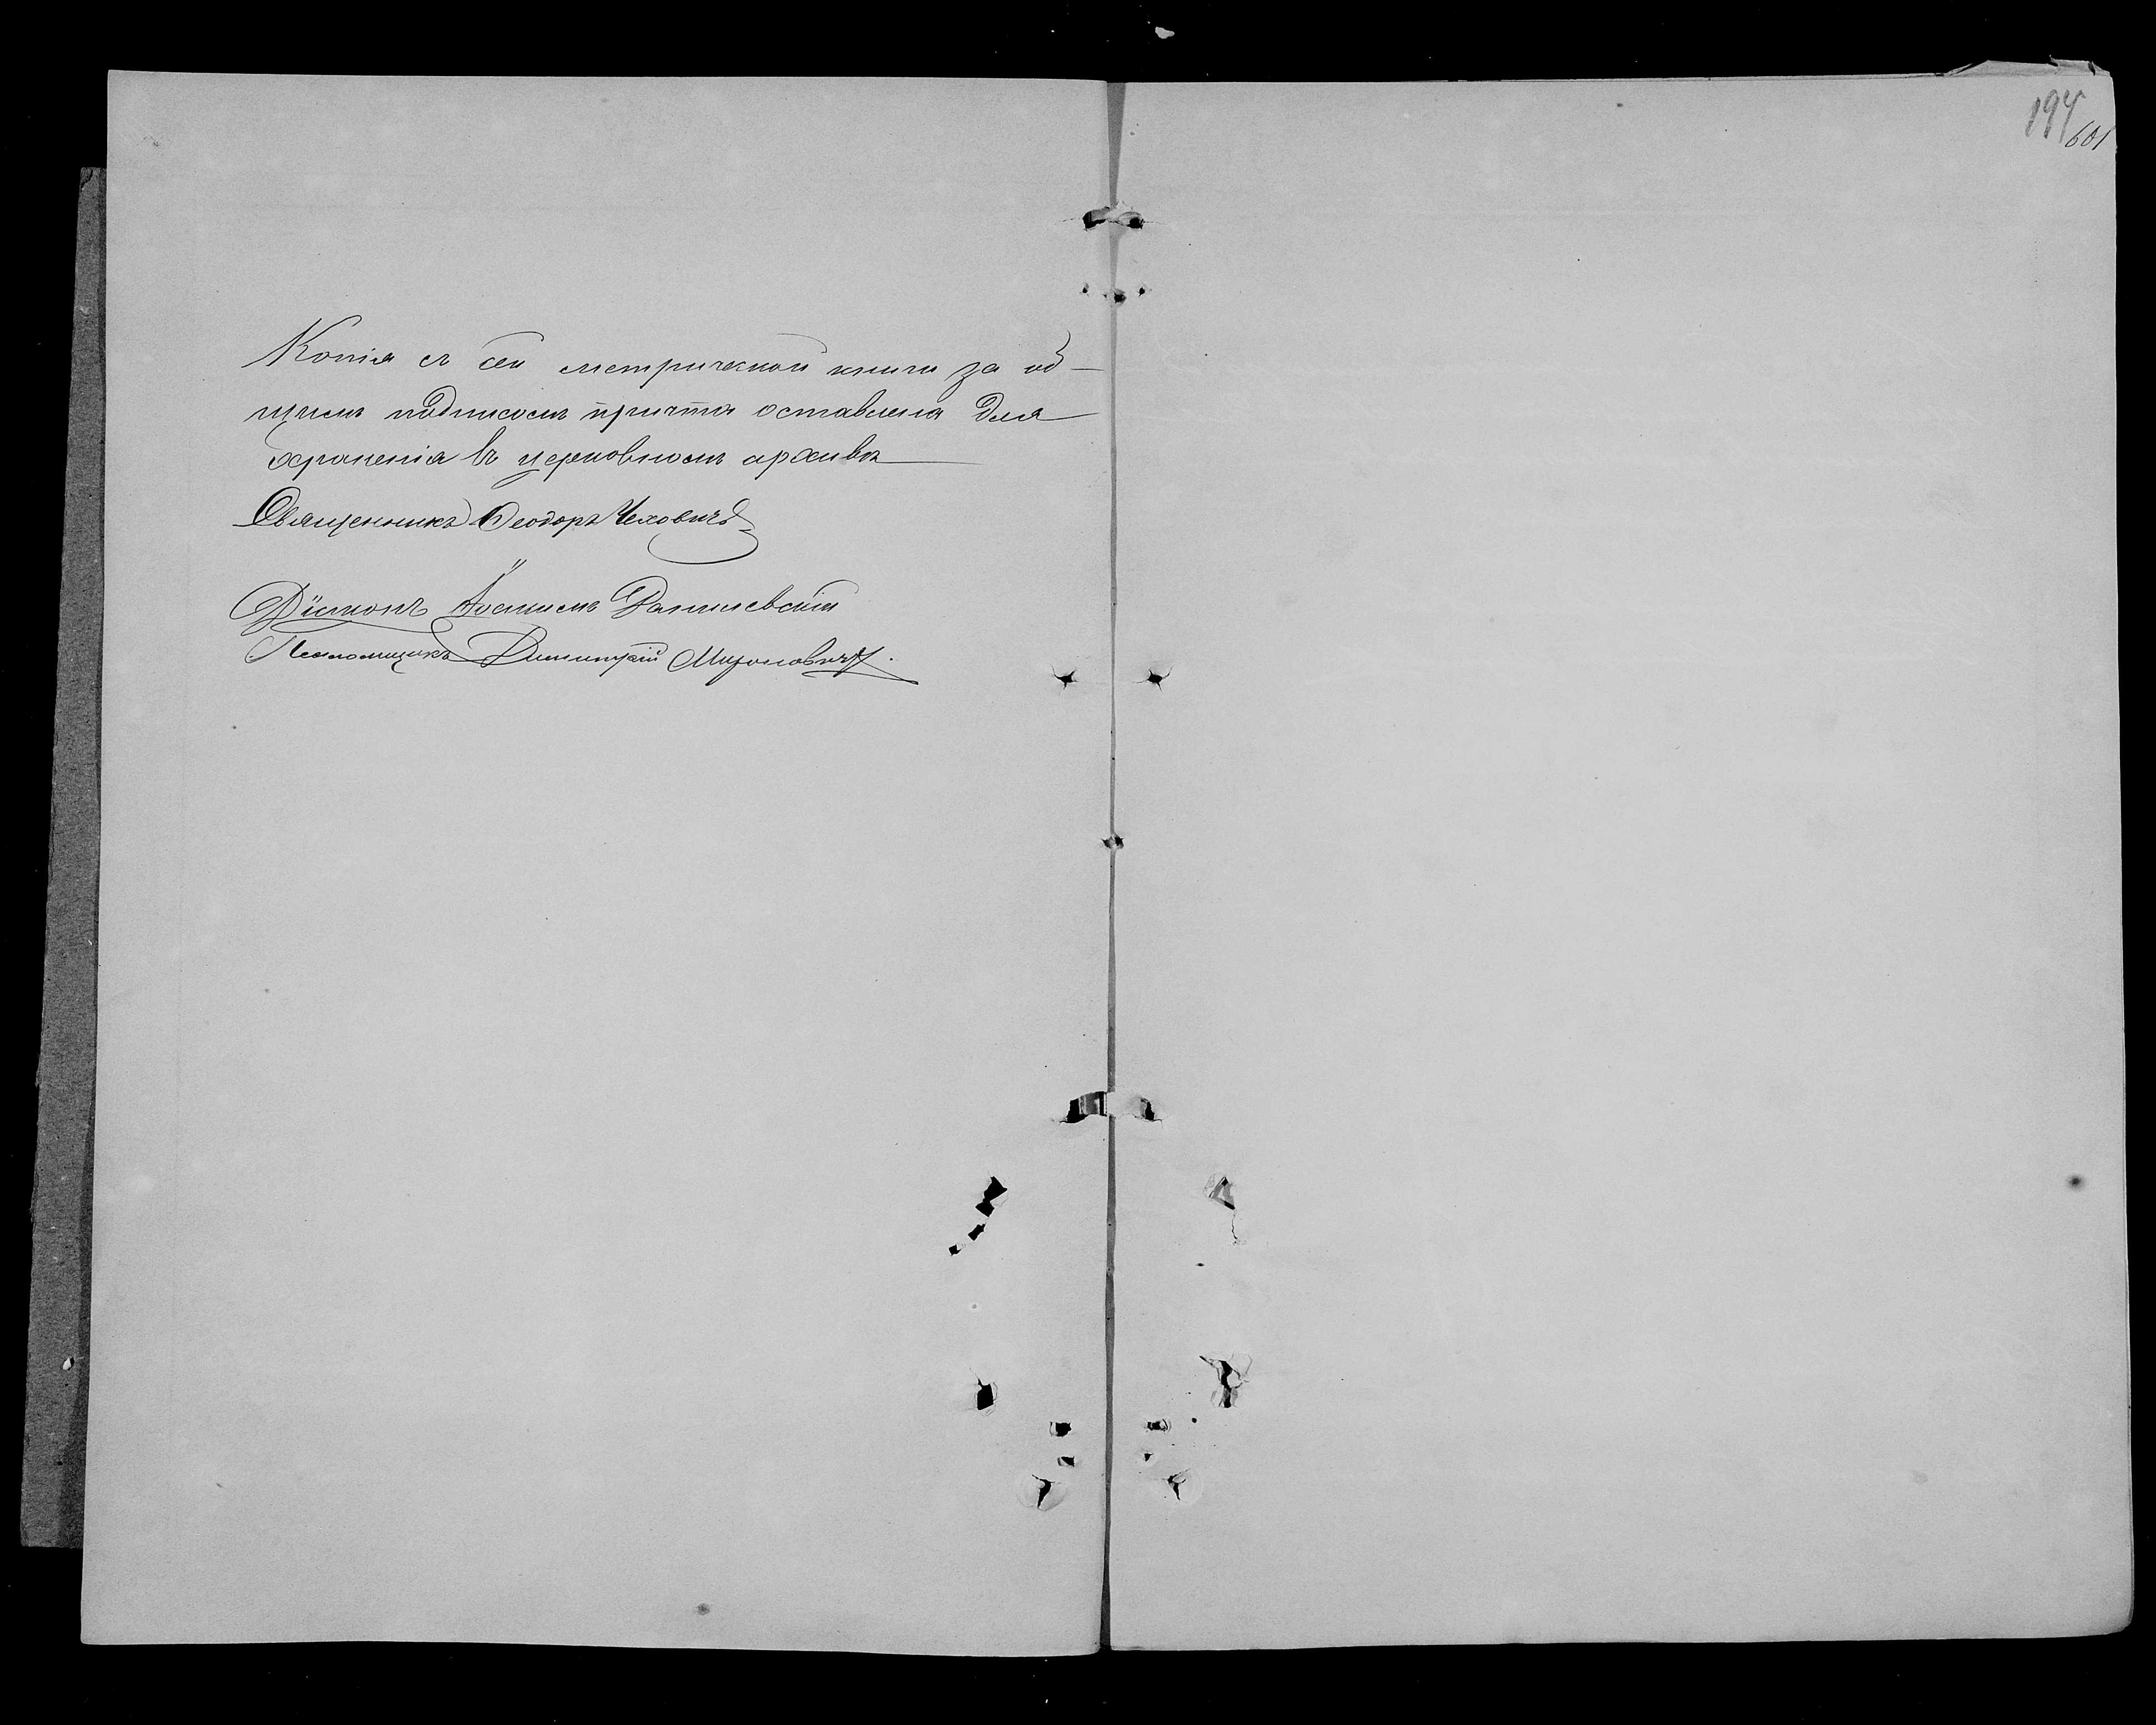 Копія съ сей метрической книги за об-
щимъ подписомъ причта оставлена для
храненія въ церковномъ архивѣ
Священникъ Ѳеодоръ Чеховичъ
Діаконъ Данилевскій
Псаломщикъ Димитрій Мироновичъ.
194
601